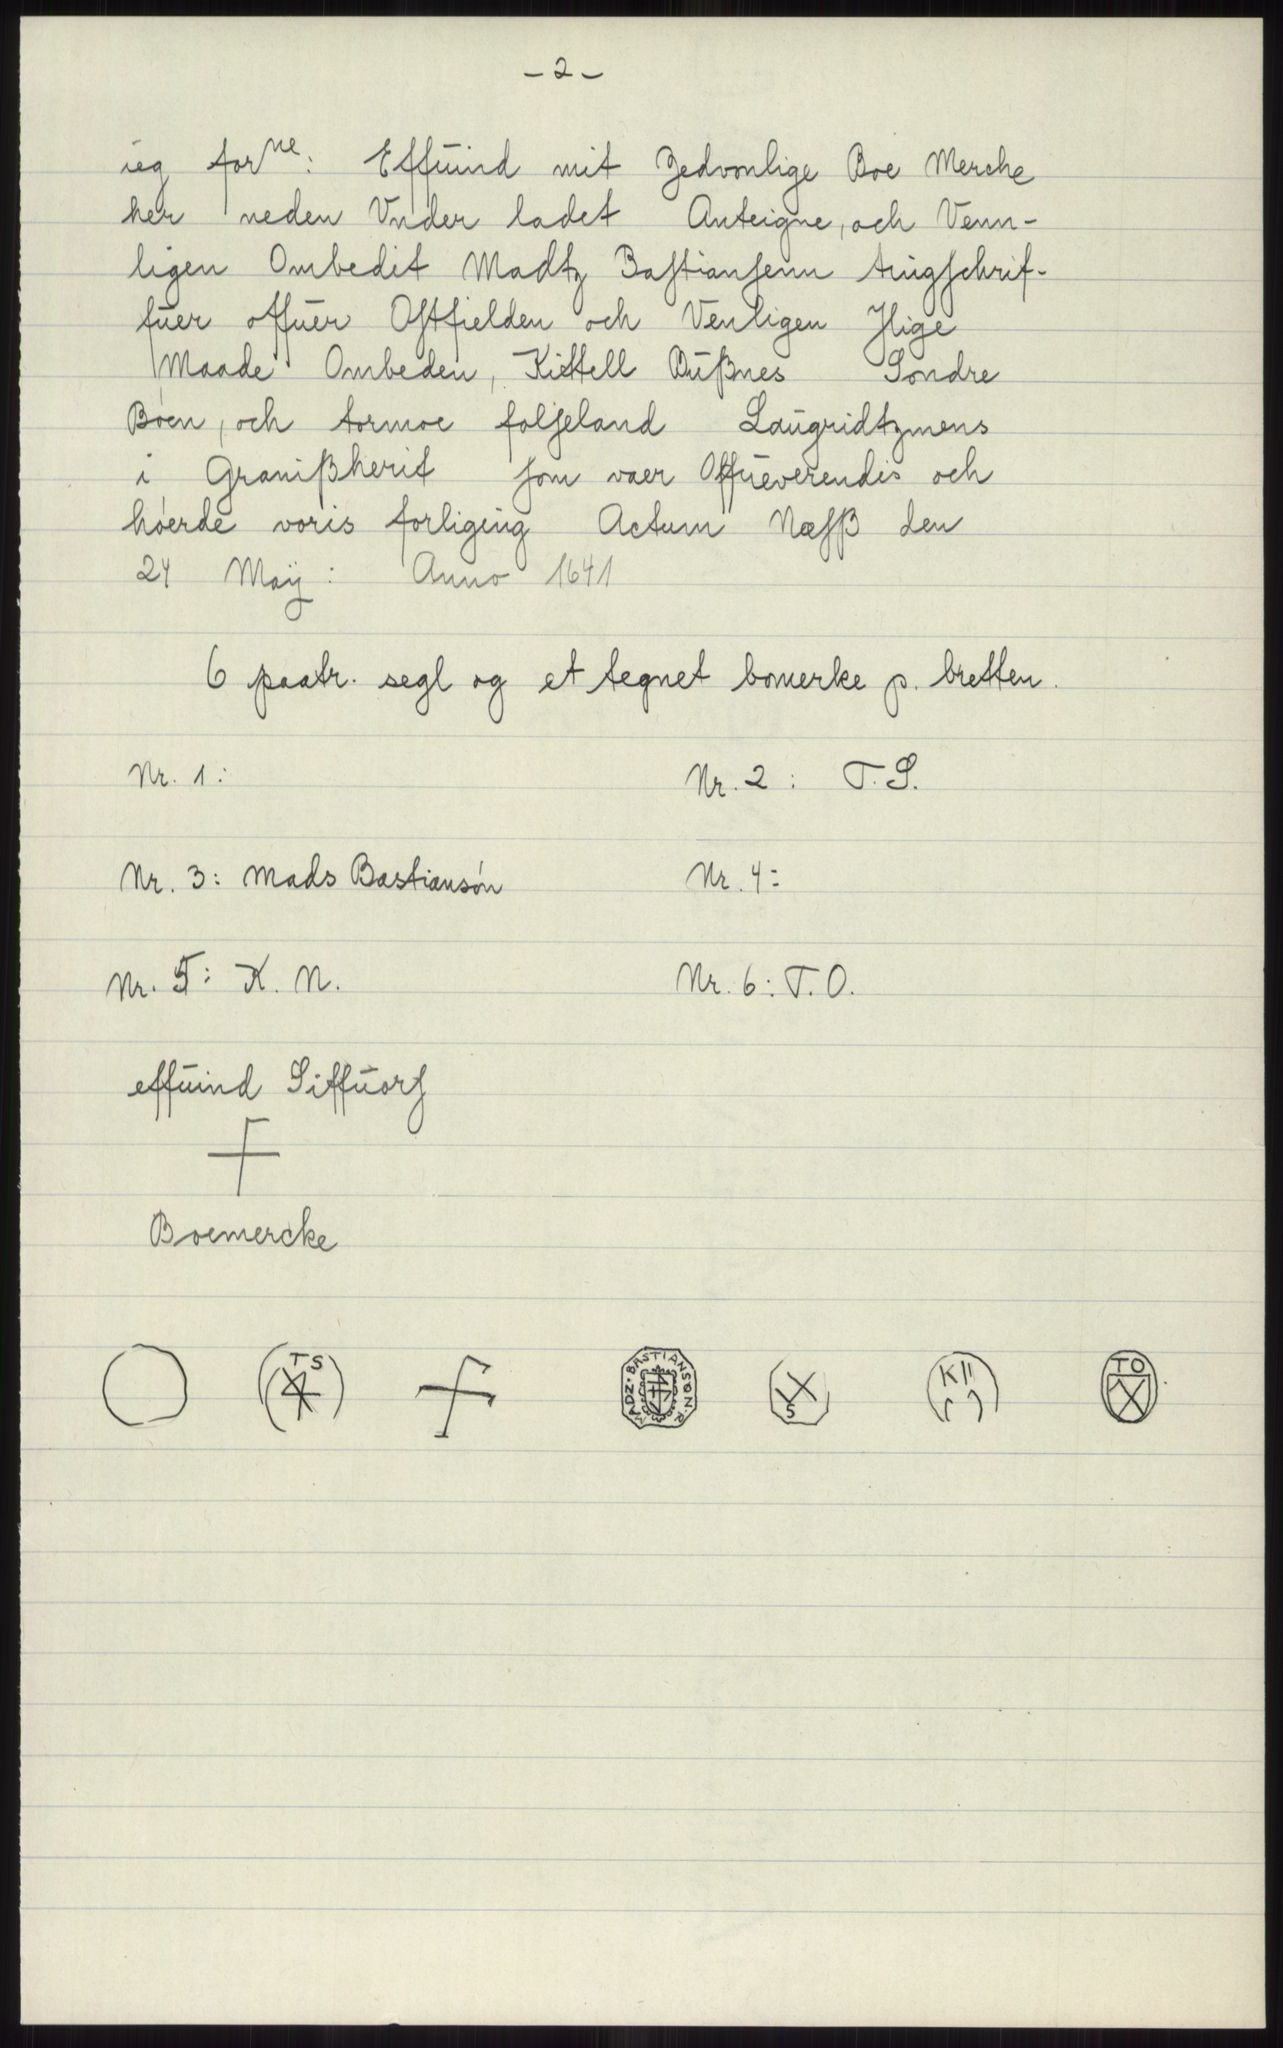 - 2 -
ieg for ne: Effuind mit Zedvonlige Boe Merche
her neden Vnder ladet Anteigne, och Venn-
ligen Ombedit Madtz Bastiansenn tingschrif-
fuer offuer Ostfielden och Venligen Jlige
Maade Ombeden, Kiettell Bußnes Sondre
Böen, och tormoe folseland Laugridtzmens
i Granißherit som vaer Offueverendis och
höerde voris forliging Actum Næsß den
24 Maÿ: Anno 1641
6 paatr. segl og et tegnet bomerke p. bretten.
Nr. 1: Nr. 2: T.S.
Nr. 3: Mads Bastiansön Nr. 4:
Nr. 5: K. N. Nr. 6: T.O.
effuind Siffuors
Boemercke
TS MADZ·BASTIANSØN S K TO